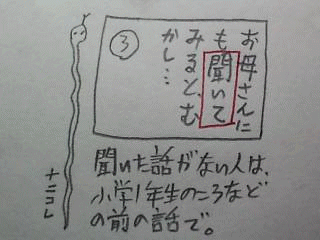 お母さんに
も聞いて
みると、む
かし…
③
聞いた話がない人は、
小学1年生のころなど
の前の話で。
ナニコレ